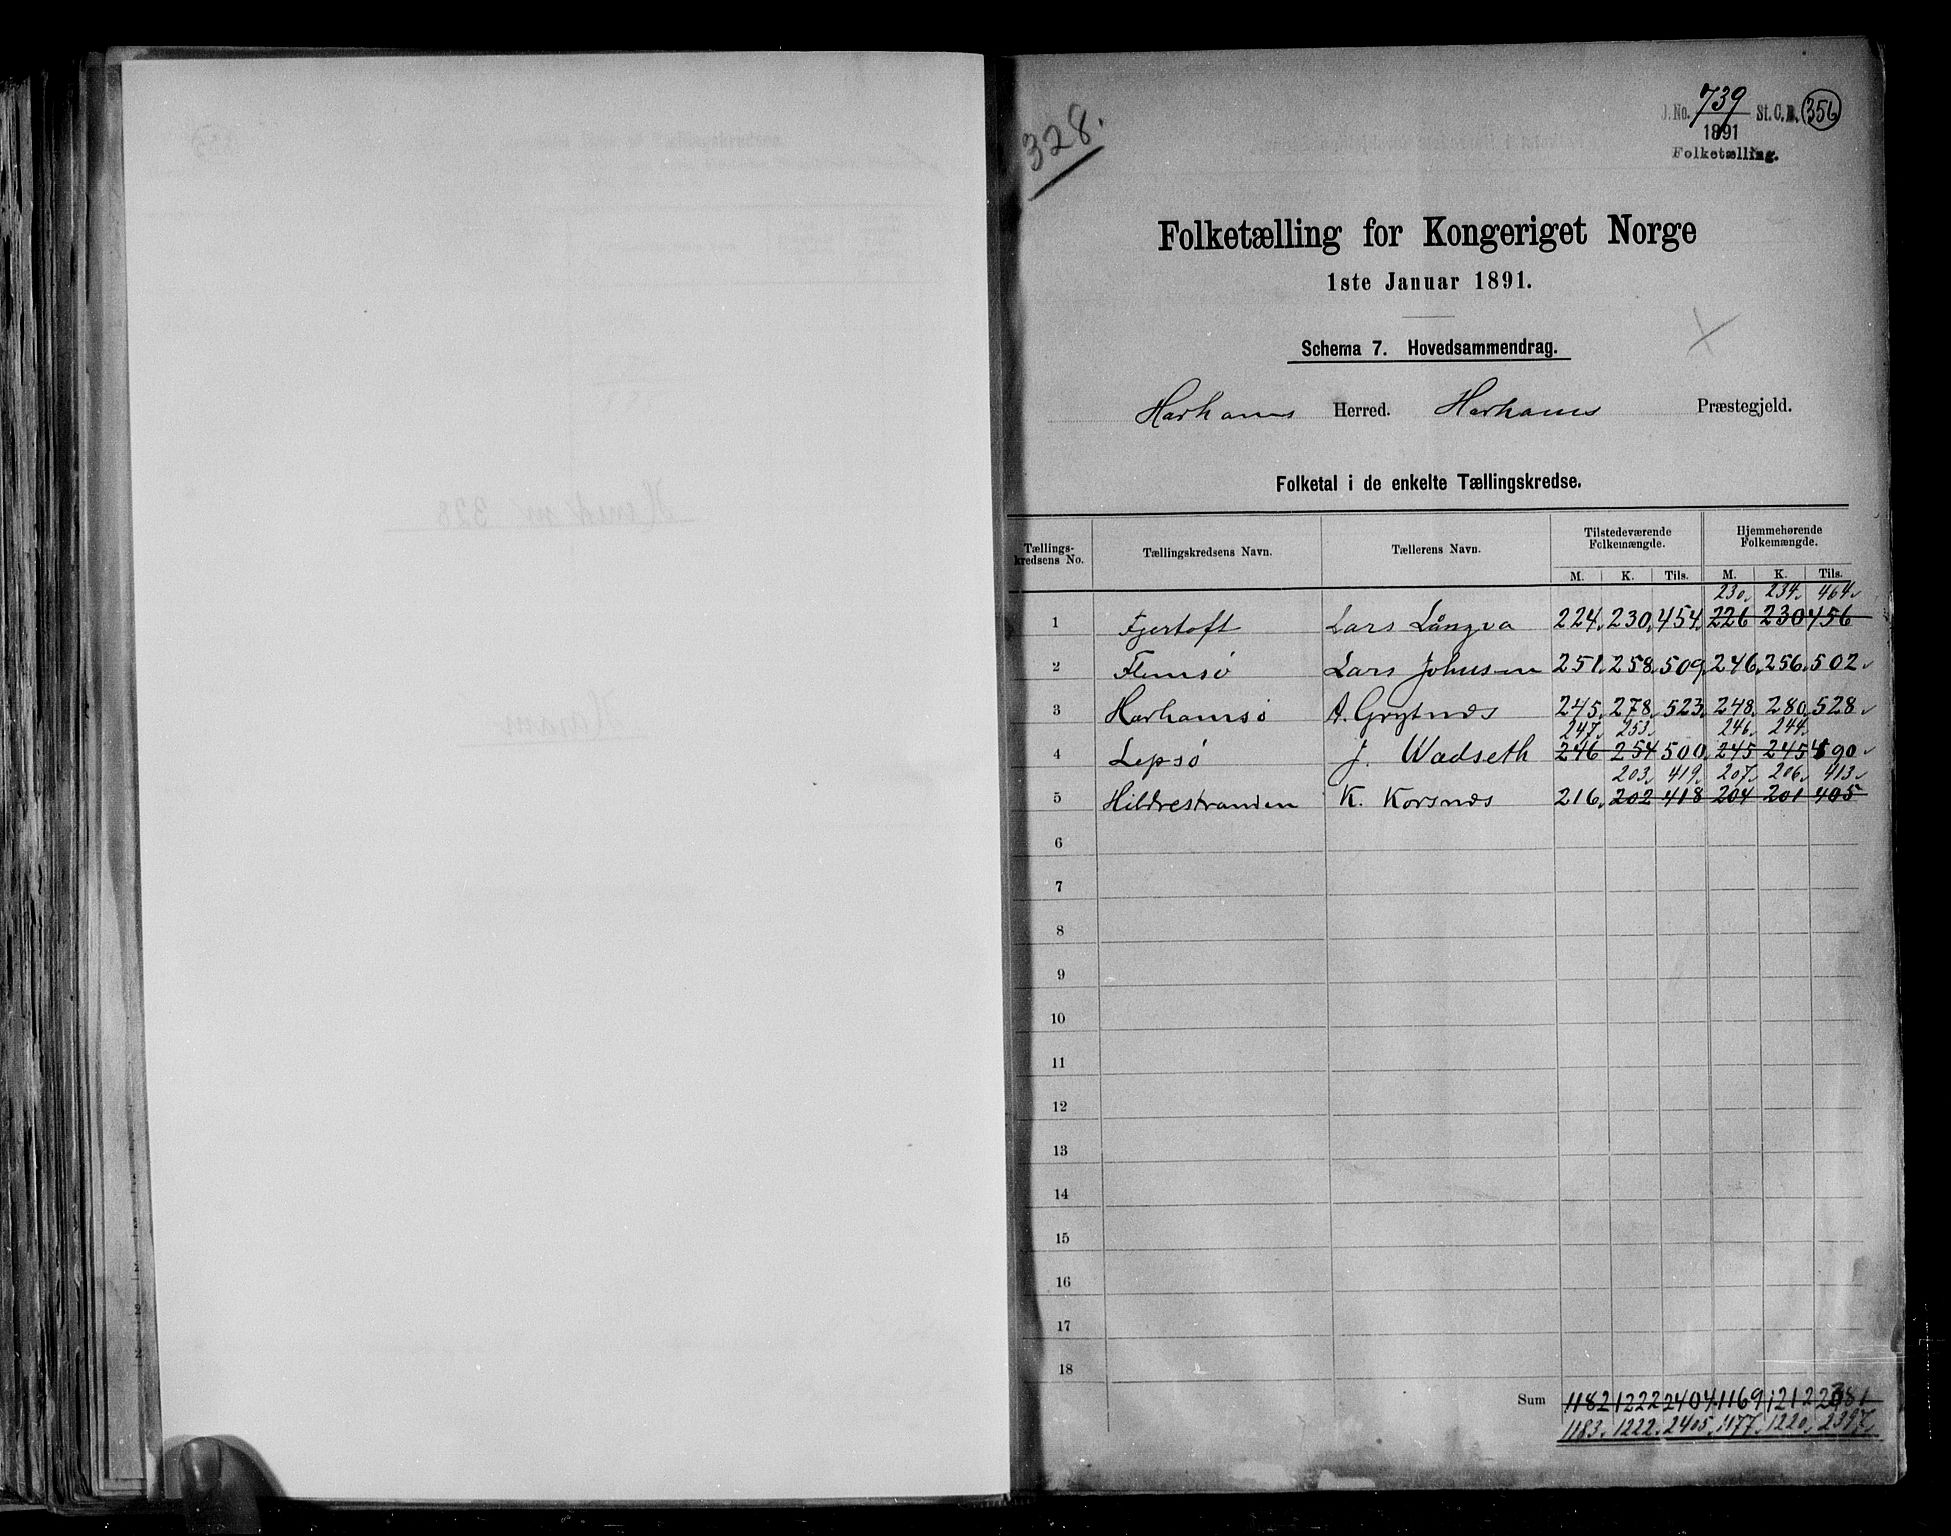 328.
J. No. 739 St. C. B. 356
1891
Folketælling.
Folketælling for Kongeriget Norge
1ste Januar 1891.
Schema 7. Hovedsammendrag.
Harhams Herred. Harhams Præstegjeld.
Folketal i de enkelte Tællingskredse.
Tællings-kredsens No. Tællingskredsens Navn. Tællerens Navn. Tilstedeværende Folkemængde. Hjemmehørende Folkemængde.
M. K. Tils. M. K. Tils.
230. 234. 464.
1 Fjertoft Lars Långva 224. 230. 454. 226 230 456
2 Flemsø Lars Johnsen 251. 258. 509. 246. 256. 502.
3 Harhamsø A. Grytnæs 245. 278. 523. 248. 280. 528.
247. 253. 246. 244.
4 Lepsø J. Wadseth 246 254 500. 245 245 490
203. 419. 207. 206. 413.
5 Hildrestranden K. Korsnæs 216. 202 418 204 201 405
6
7
8
9
10
11
12
13
14
15
16
17
18
Sum 1182 1222 2404 1169 1212 2381
1183. 1222. 2405. 1177. 1220. 2397.